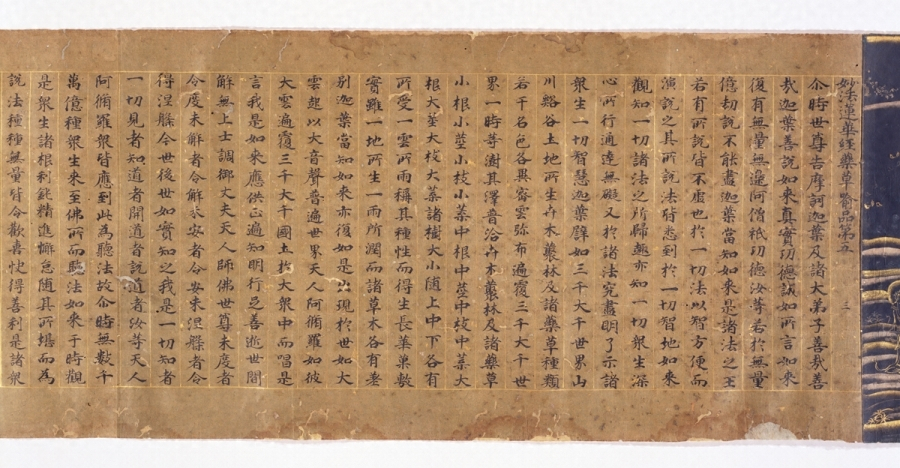 妙法蓮華經藥草喻品第五　三
尒時世尊告摩訶迦葉及諸大弟子善哉善
哉迦葉善說如來真實功德誠如所言如來
復有無量無邊阿僧祇功德汝等若於無量
億劫說不能盡迦葉當知如來是諸法之王
若有所說皆不虛也於一切法以智方便而
演說之其所說法皆悉到於一切智地如來
觀知一切諸法之所歸趣亦知一切眾生深
心所行通達無礙又於諸法究盡明了示諸
眾生一切智慧迦葉譬如三千大千世界山
川谿谷土地所生卉木藂林及諸藥草種類
若干名色各異密雲弥布遍覆三千大千世
界一時等澍其澤普洽卉木藂林及諸藥草
小根小莖小枝小葉中根中莖中枝中葉大
根大莖大枝大葉諸樹大小隨上中下各有
所受一雲所雨稱其種性而得生長華菓敷
實雖一地所生一雨所潤而諸草木各有差
別迦葉當知如來亦復如是出現於世如大
雲起以大音聲普遍世界天人阿脩羅如彼
大雲遍覆三千大千國土於大眾中而唱是
言我是如來應供正遍知明行足善逝世間
解無上士調御丈夫天人師佛世尊未度者
令度未解者令解未安者令安未涅槃者令
得涅槃今世後世如實知之我是一切知者
一切見者知道者開道者說道者汝等天人
阿脩羅眾皆應到此為聽法故尒時無數千
萬億種眾生來至佛所而聽法如來于時觀
是眾生諸根利鈍精進懈怠隨其所堪而為
說法種種無量皆令歡喜快得善利是諸眾